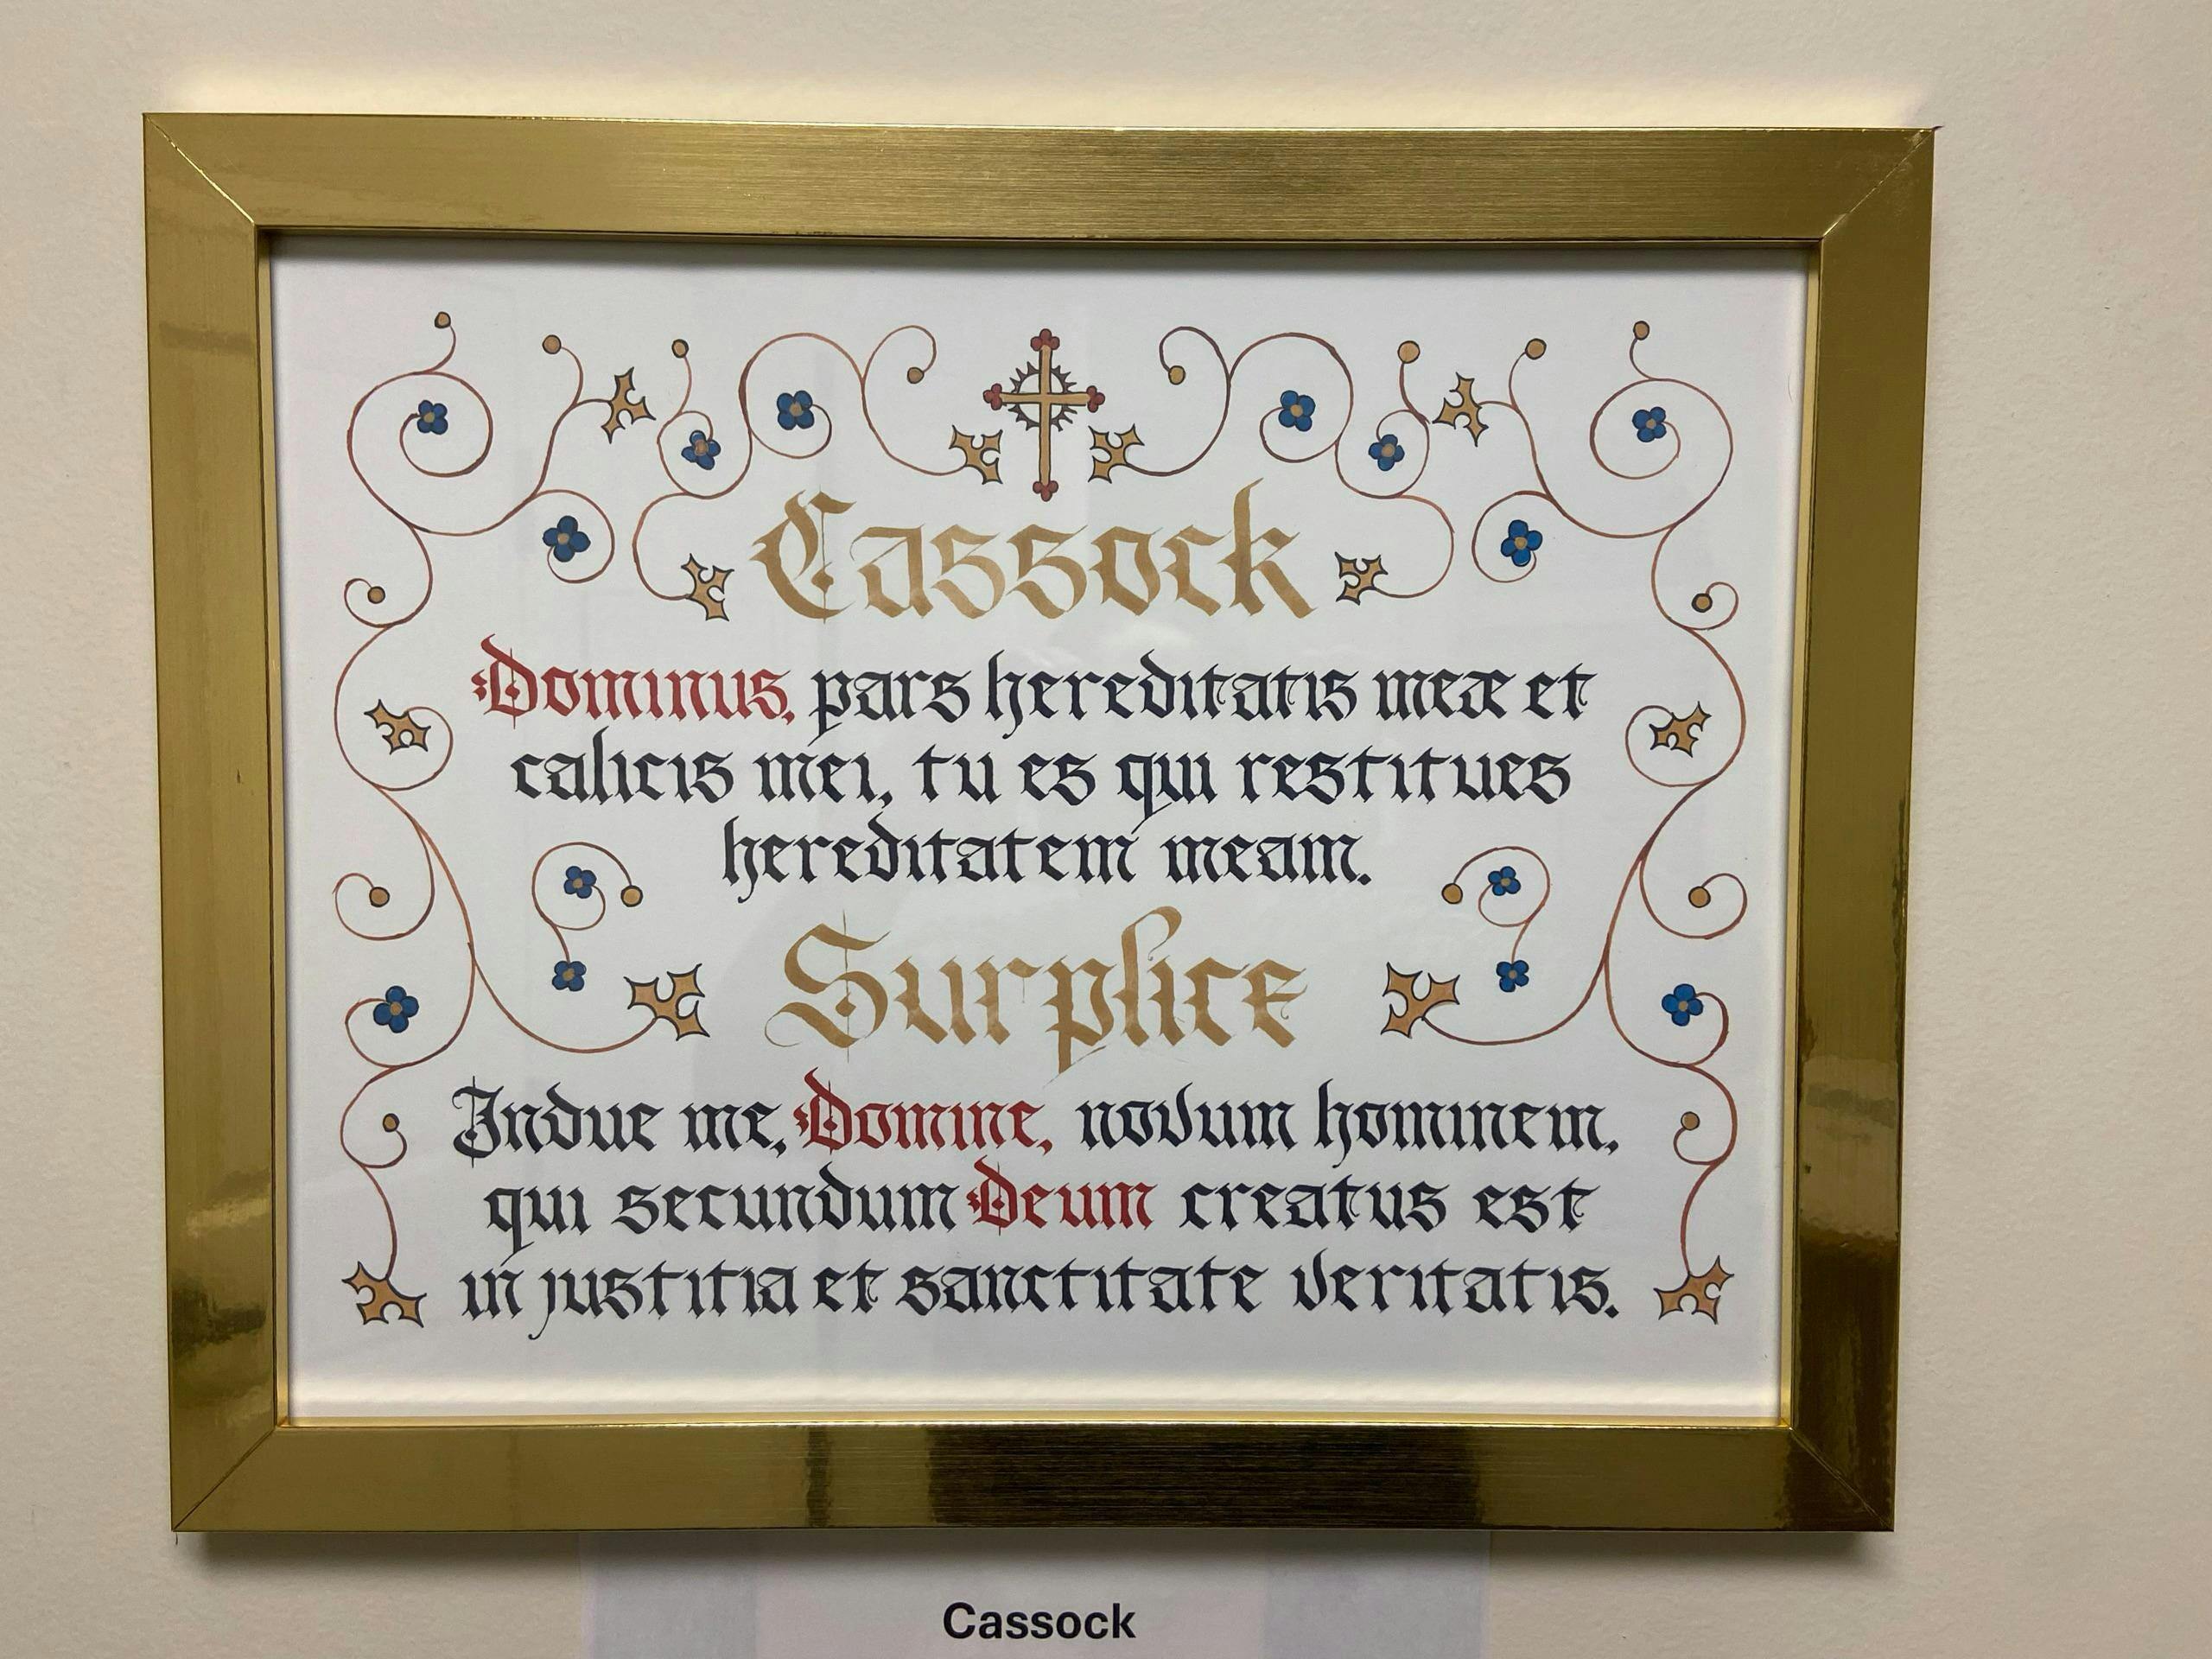 Cassock
Dominus, pars hereditatis meæ et
calicis mei, tu es qui restitues
hereditatem meam.
Surplice
Indue me, Domine, novum hominem,
qui secundum Deum creatus est
in justitia et sanctitate veritatis.
Cassock